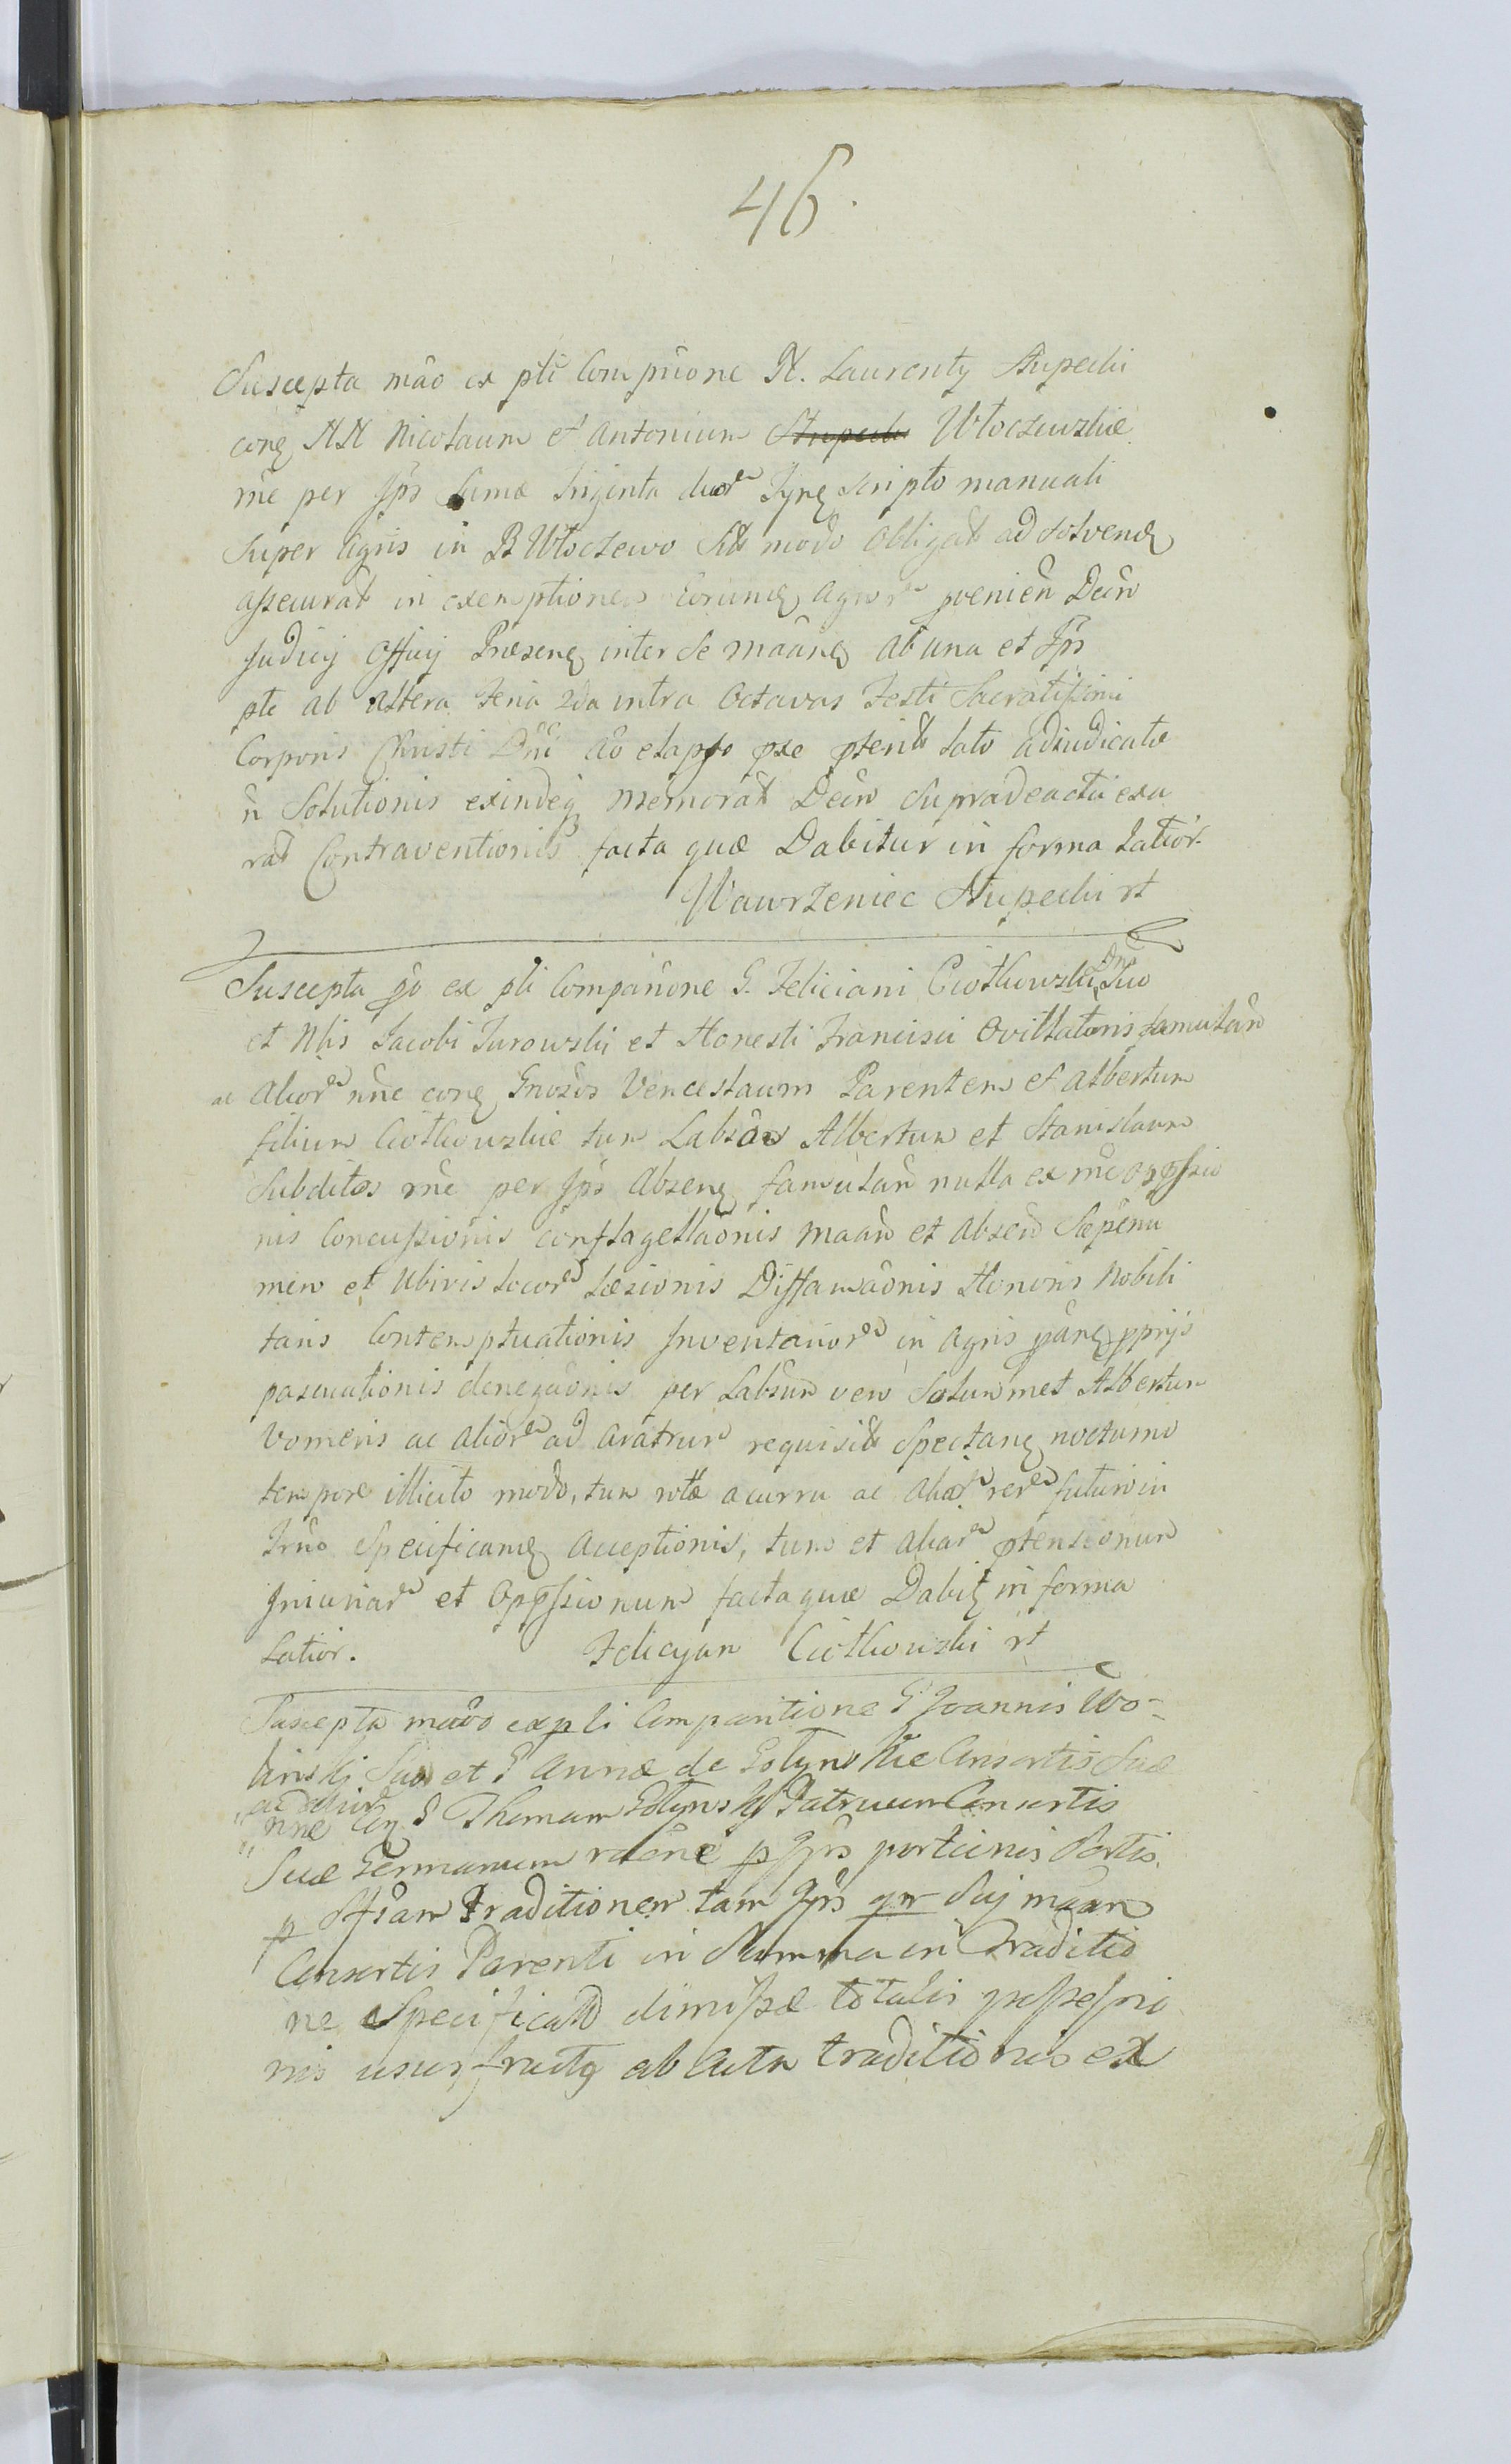 46.
Suscepta mão ex pti Compnione N. Laurenty Stupecki
conq NN Nicolaum et Antonium Stupecki Włoczewskie
rne per Ips Sumæ triginta duor Tynq Scripto manuali
Super Agris in B Włoczewo Sit modo obligat ad solvend
assecurat in exemptionem eorumq agror pvenien Decr
Judicy Officy Præsenq inter se maanq ab una et Ips
pte ab altera Feria 2da intra Octavas Festi Sacratissimi
Corporis Christi Dni ao elapso pxe pterit lato adiudicatæ
n Solutionis exindeq memorat Decr Supradeacta exa
rat Contraventionis facta quæ Dabitur in forma latior.
Wawrzeniec Stupecki rt
Suscepta po ex pti Compañone G. Feliciani Ciotkowski Dno Suo
et Nlis Jacobi Turowski et Honesti Francisci Ovillatoris famulan
ac alior nne conq Gnosos Venceslaum Parentem et Albertum
filium Ciotkowskie tum Labsos Albertum et Stanislaum
Subditos rne per Ips absenq famulan nulla ex rne oppssio
nis Concussionis conflagellaonis maan et absen Sæpenu
mero et Ubivis locor læsionis Diffamaonis Honoris Nobili
taris Contemptuationis Inventarior in agris panq pprys
pascuationis denegaonis per Labsum vero Solummet Albertum
Vomeris ac alior ad aratrum requisit Spectanq nocturno
tempore illicito modo, tum rotæ a curru ac aliar rer futuro in
Trno Specificanq acceptionis, tum et aliar ptensionum
Iniuriar et Oppssionum facta quæ Dabit in forma
Latior. Felicyan Ciotkowski rt
Suscepta modo ex pti Comparitione G Joannis Wo-
linskj Suo et G Annæ de Golyns kie Consortis Suæ
ac alior
nne Conq G Thomam Golynskj Patruum Consortis
Suæ Germanum rne p Ips portionis Sortis
p Ssiam Traditionem tam Ips qm Suj maan
Consortis Parenti in Summa in Traditio
ne Specificat dimissæ totalis possessio
nis ususfructq ab Actu traditionis ex